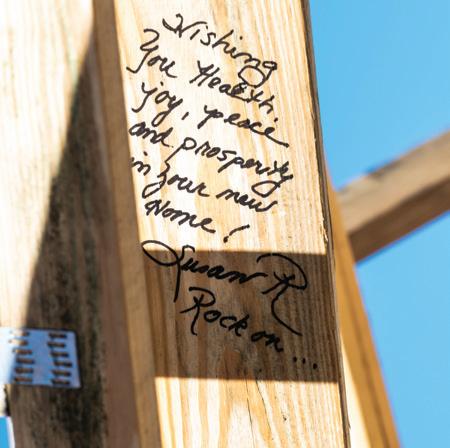 Wishing
you Health,
joy, peace
and prosperity
in your new
Home!
Susan R
Rock on...